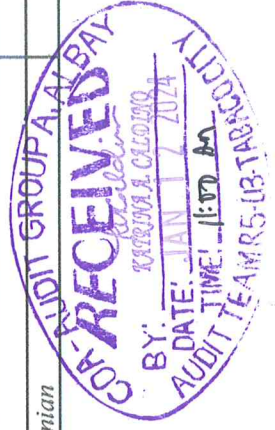 COA-AUDIT GROUP A, ALBAY
RECEIVED
BY:
DATE: JAN 12 2024
TIME: 11:00 AM
AUDIT TEAM R5-03-TABACO CITY
nian